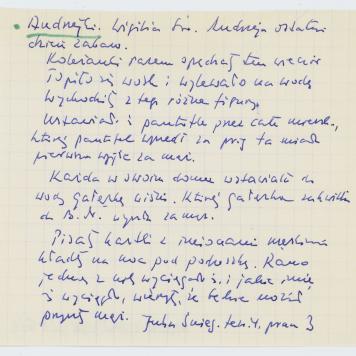 Andrzejki. Wigilia św. Andrzeja ostatni
dzień zabaw.
Koleżanki razem spędzały ten wieczór
Topiło się wosk i wylewało na wodę
wychodziły z tego różne figury.
Ustawiali i pantofle przez całe mieszk.,
której pantofel wyszedł za próg ta miała
pierwsza wyjść za mąż.
Każda w swoim domu wstawiała do
wody gałązkę wiśni. Której gałązka zakwitła
do B.N. wyszła za mąż.
Pisały kartki z imionami męskimi
kładły na noc pod poduszkę. Rano
jedną z nich wyciągały i jakie imię
się wyciągło, wierzyły, że będzie nosił
przyszły mąż.